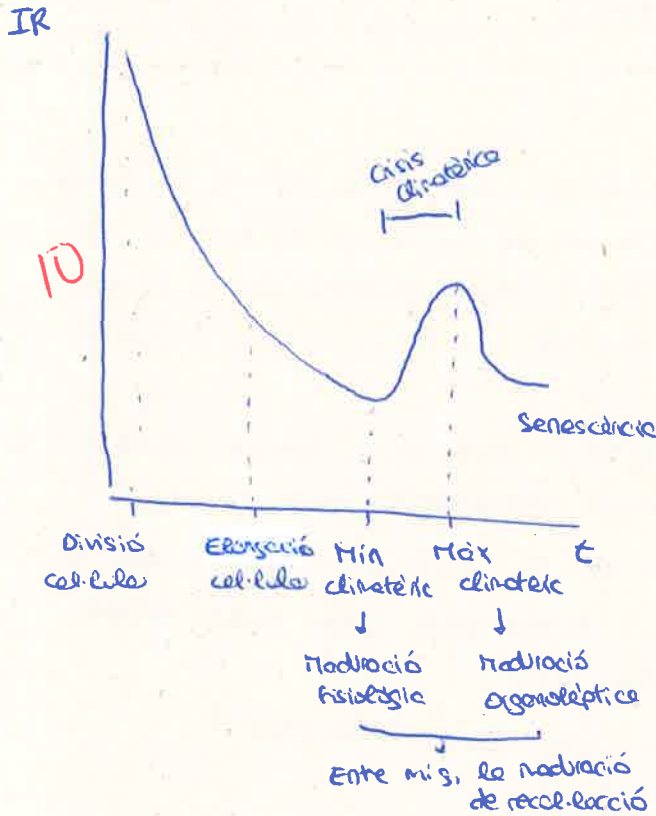 IR
Crisis
climatèrica
10
Senescència
Divisió
cel·lular
Elongació
cel·lular
Mín
climatèric
Màx
climatèric
t
Maduració
fisiològia
Maduració
organolèptica
Entre mig, la maduració
de recol·lecció